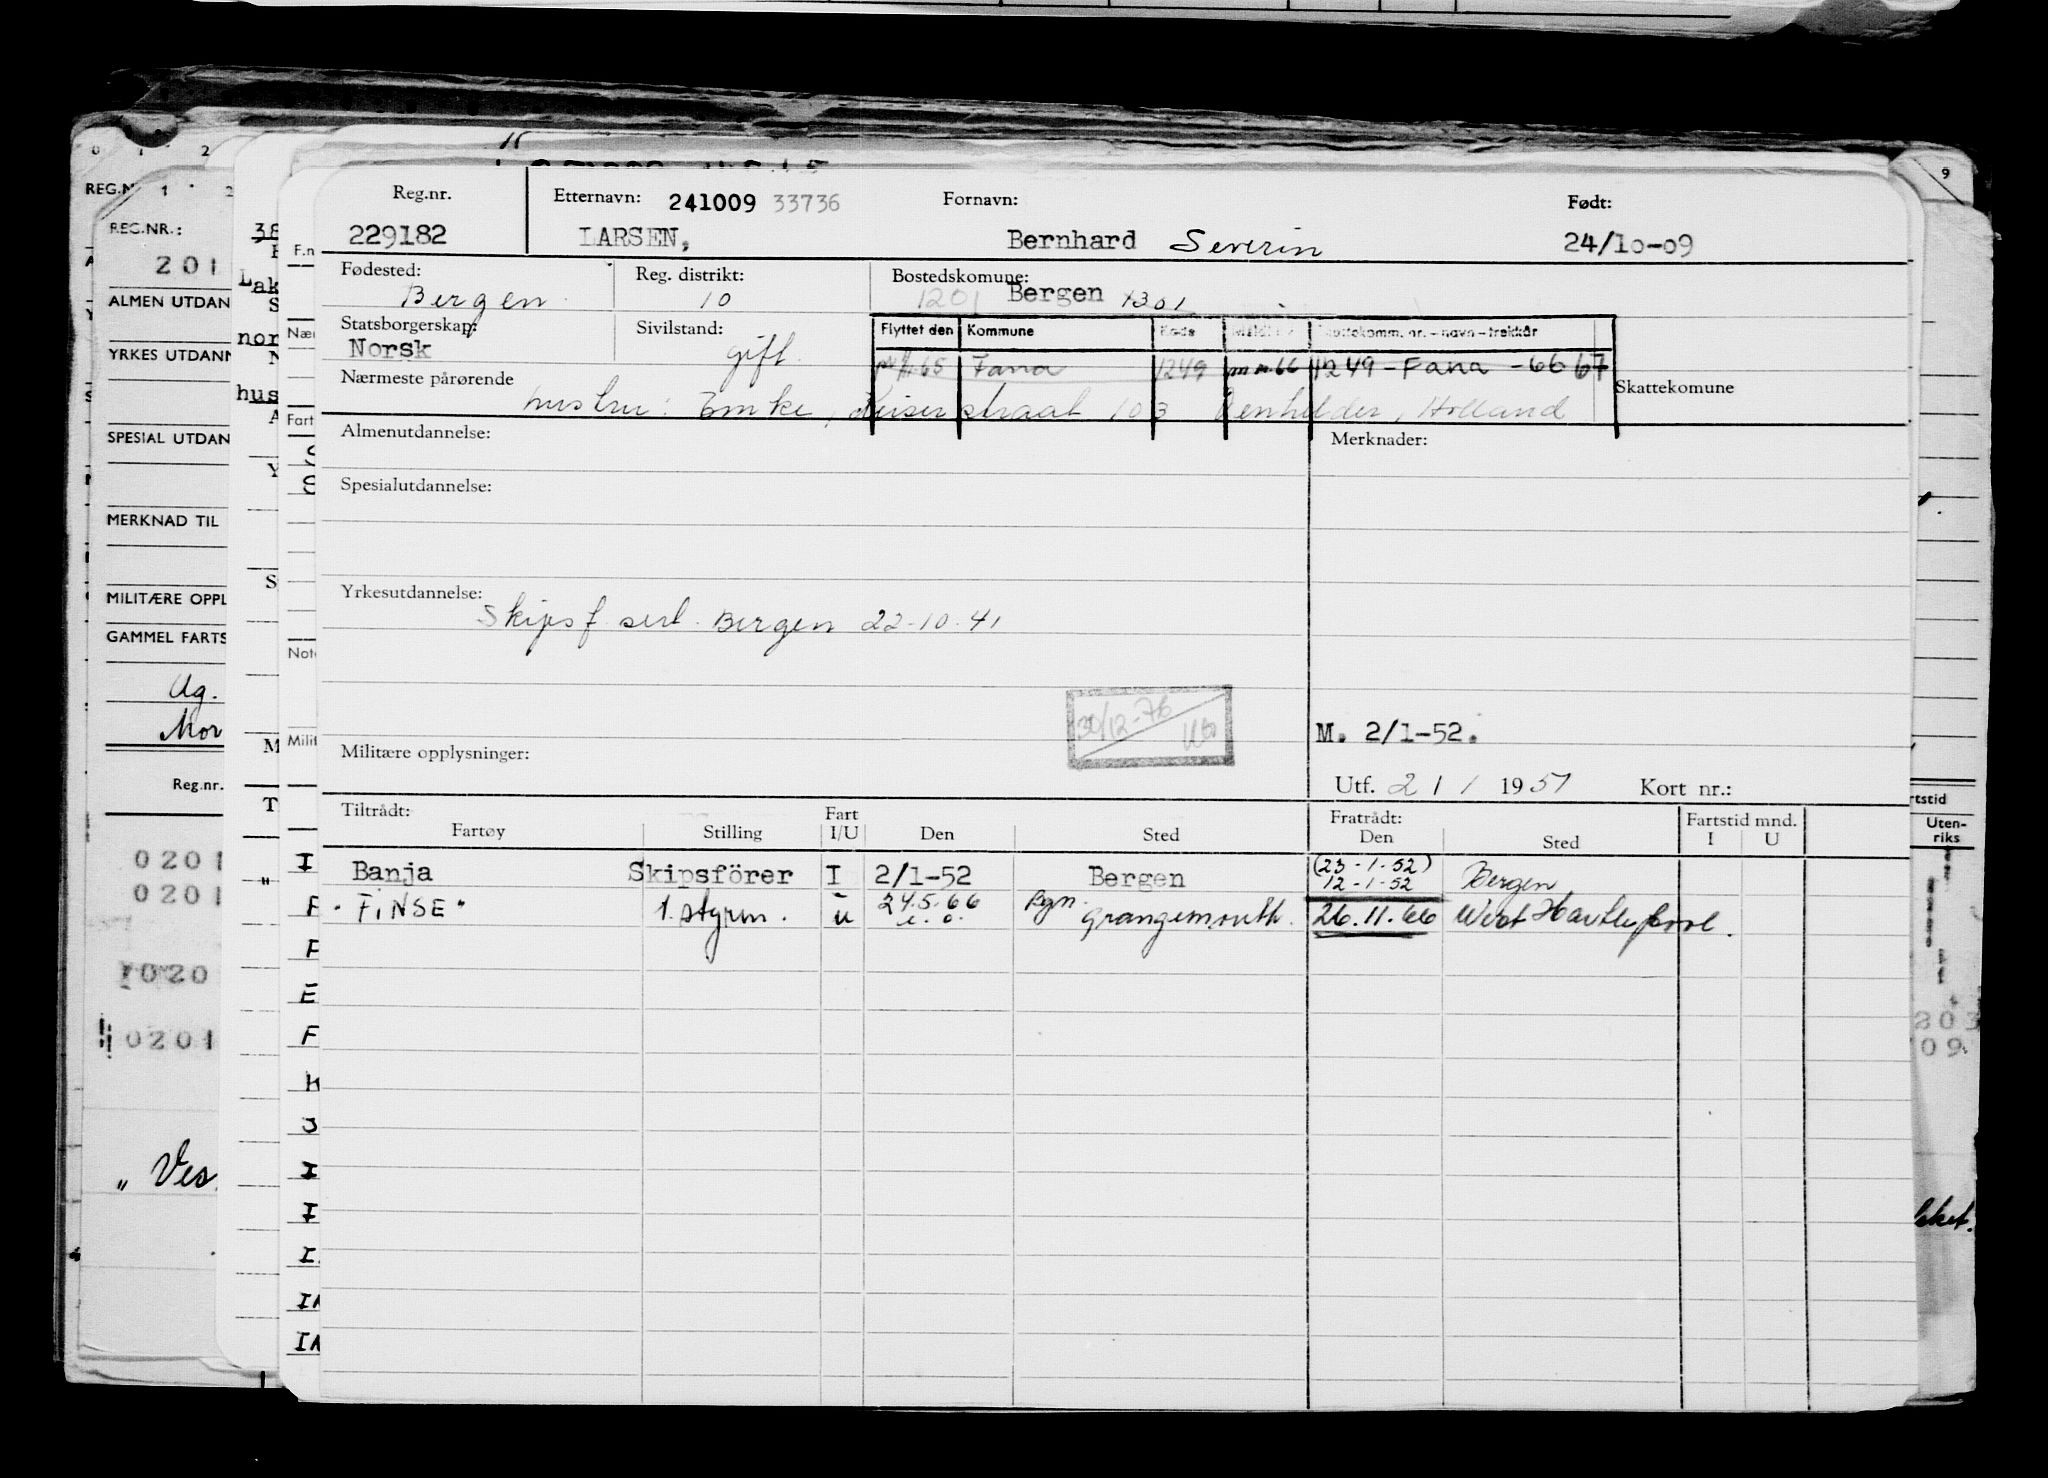 Reg.nr. Etternavn: 241009 33736 Fornavn: Født:
229182 LARSEN, Bernhard Severin 24/10-09
Fødested: Reg. distrikt: Bostedskomune:
Bergen 10 1201 Bergen 1301
Statsborgerskap: Sivilstand: Flyttet den Kommune Kode Skattekomm. nr. - navn - trekkår
Norsk gift. 65 Fana 1249 66 1249 - Fana - 66 67
Nærmeste pårørende Skattekomune
hustru: Emke, Keiserstraat 103 Denhelder, Holland
Almenutdannelse: Merknader:
Spesialutdannelse:
Yrkesutdannelse:
Skipsf. sert. Bergen 22-10-41
30/12-76
M. 2/1-52.
Militære opplysninger:
Utf. 2 / 1 1951 Kort nr.:
Tiltrådt: Fart Fratrådt: Fartstid mnd.
Fartøy Stilling I/U Den Sted Den Sted I U
Banja Skipsförer I 2/1-52 Bergen (23-1-52) 12-1-52 Bergen
"FINSE" 1. styrm. u 24.5.66 Bgn. Grangemouth. 26.11.66 West Hartlepool.
REG.NR.:
201
ALMEN UTDAN
YRKES UTDANN
SPESIAL UTDAN
MERKNAD TIL
MILITÆRE OPPL
GAMMEL FARTS
Ag.
Mor
Reg.nr.
0201
0201
1020
0201
"Ves
Uten-
riks